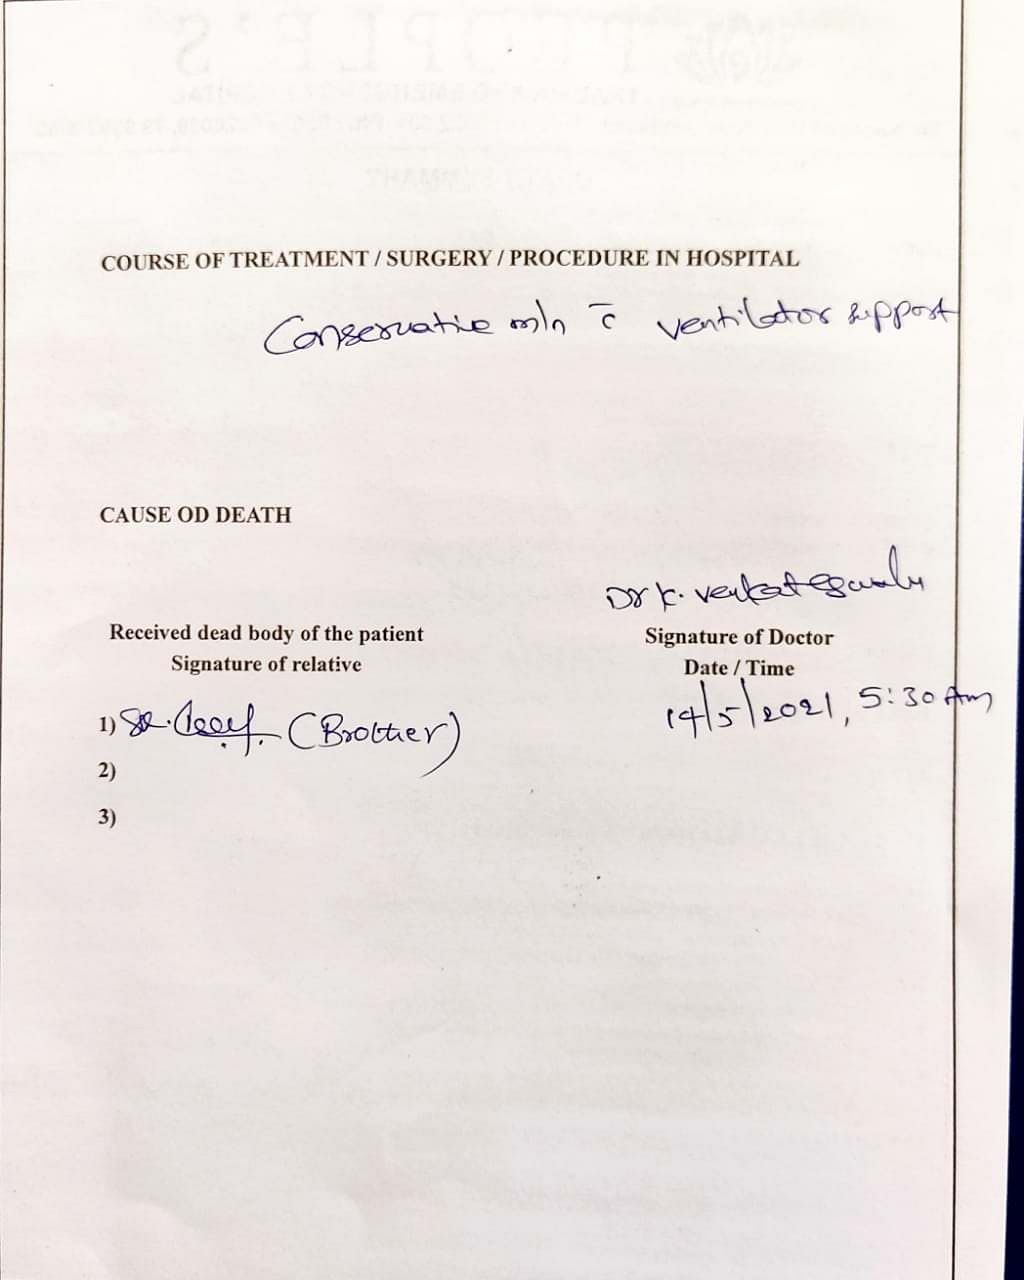 COURSE OF TREATMENT / SURGERY / PROCEDURE IN HOSPITAL
Conservative m/n c̄ ventilator support
CAUSE OD DEATH
Dr K. Venkateswarlu
Received dead body of the patient
Signature of Doctor
Signature of relative
Date / Time
14/5/2021, 5:30 Am
1) (Brother)
2)
3)